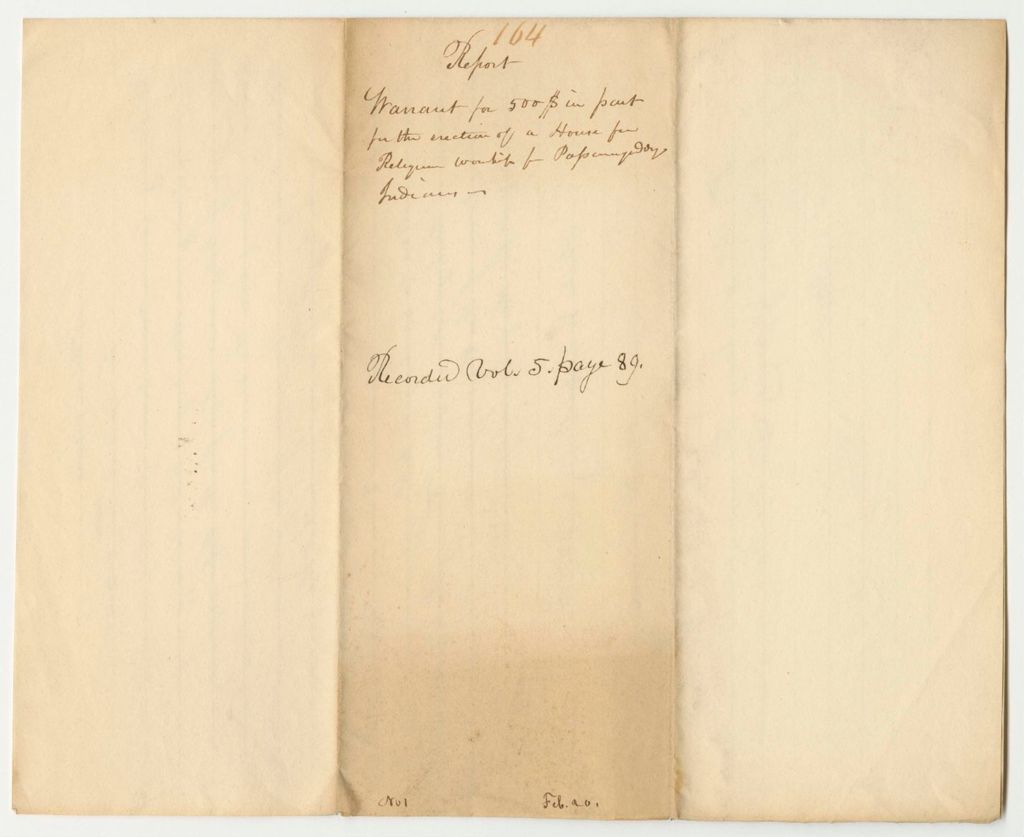 164
Report
Warrant for 500 $ in part
for the erection of a House for
Religious worship for Passamaquoddy
Indians
Recorded Vol. 5. page 89.
No 1
Feb. 20.